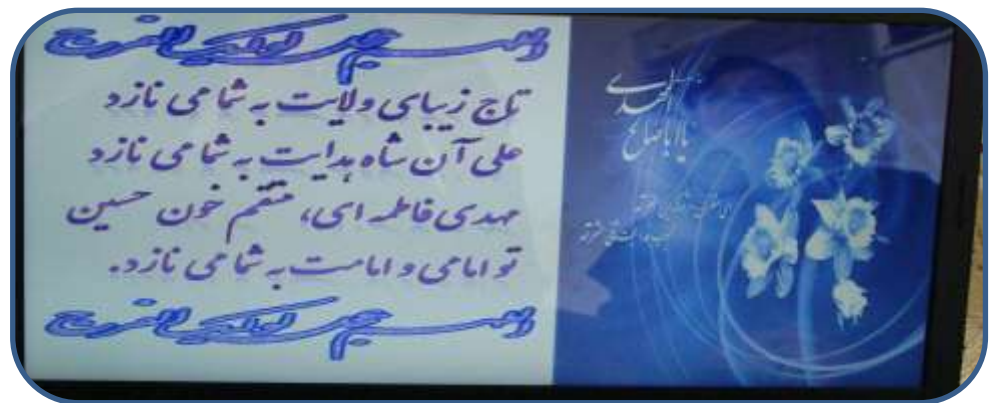 اللهم عجل لولیک الفرج
تاج زیبای ولایت به شما می نازد
علی آن شاه هدایت به شما می نازد
مهدی فاطمه ای، منتقم خون حسین
تو امامی و امامت به شما می نازد.
اللهم عجل لولیک الفرج
یا اباصالح المهدی